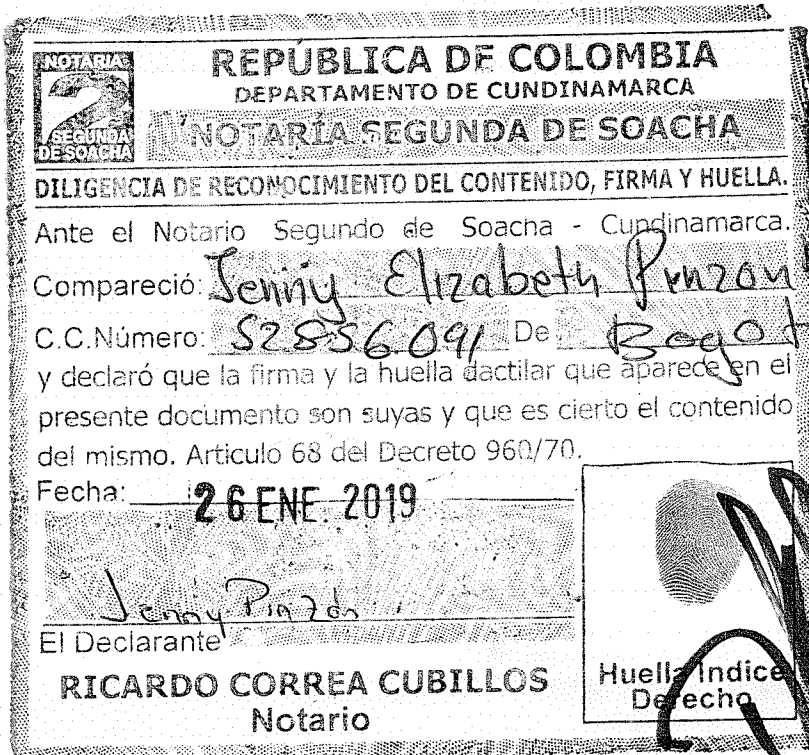 NOTARIA
2
SEGUNDA
DE SOACHA
REPÚBLICA DE COLOMBIA
DEPARTAMENTO DE CUNDINAMARCA
NOTARÍA SEGUNDA DE SOACHA
DILIGENCIA DE RECONOCIMIENTO DEL CONTENIDO, FIRMA Y HUELLA.
Ante el Notario Segundo de Soacha - Cundinamarca.
Compareció: Jenny Elizabeth Pinzon
C.C.Número: 52856091 De Bogot
y declaró que la firma y la huella dactilar que aparece en el
presente documento son suyas y que es cierto el contenido
del mismo. Articulo 68 del Decreto 960/70.
Fecha: 26 ENE. 2019
Jenny Pinzón
El Declarante
RICARDO CORREA CUBILLOS
Notario
Huella Indice
Derecho